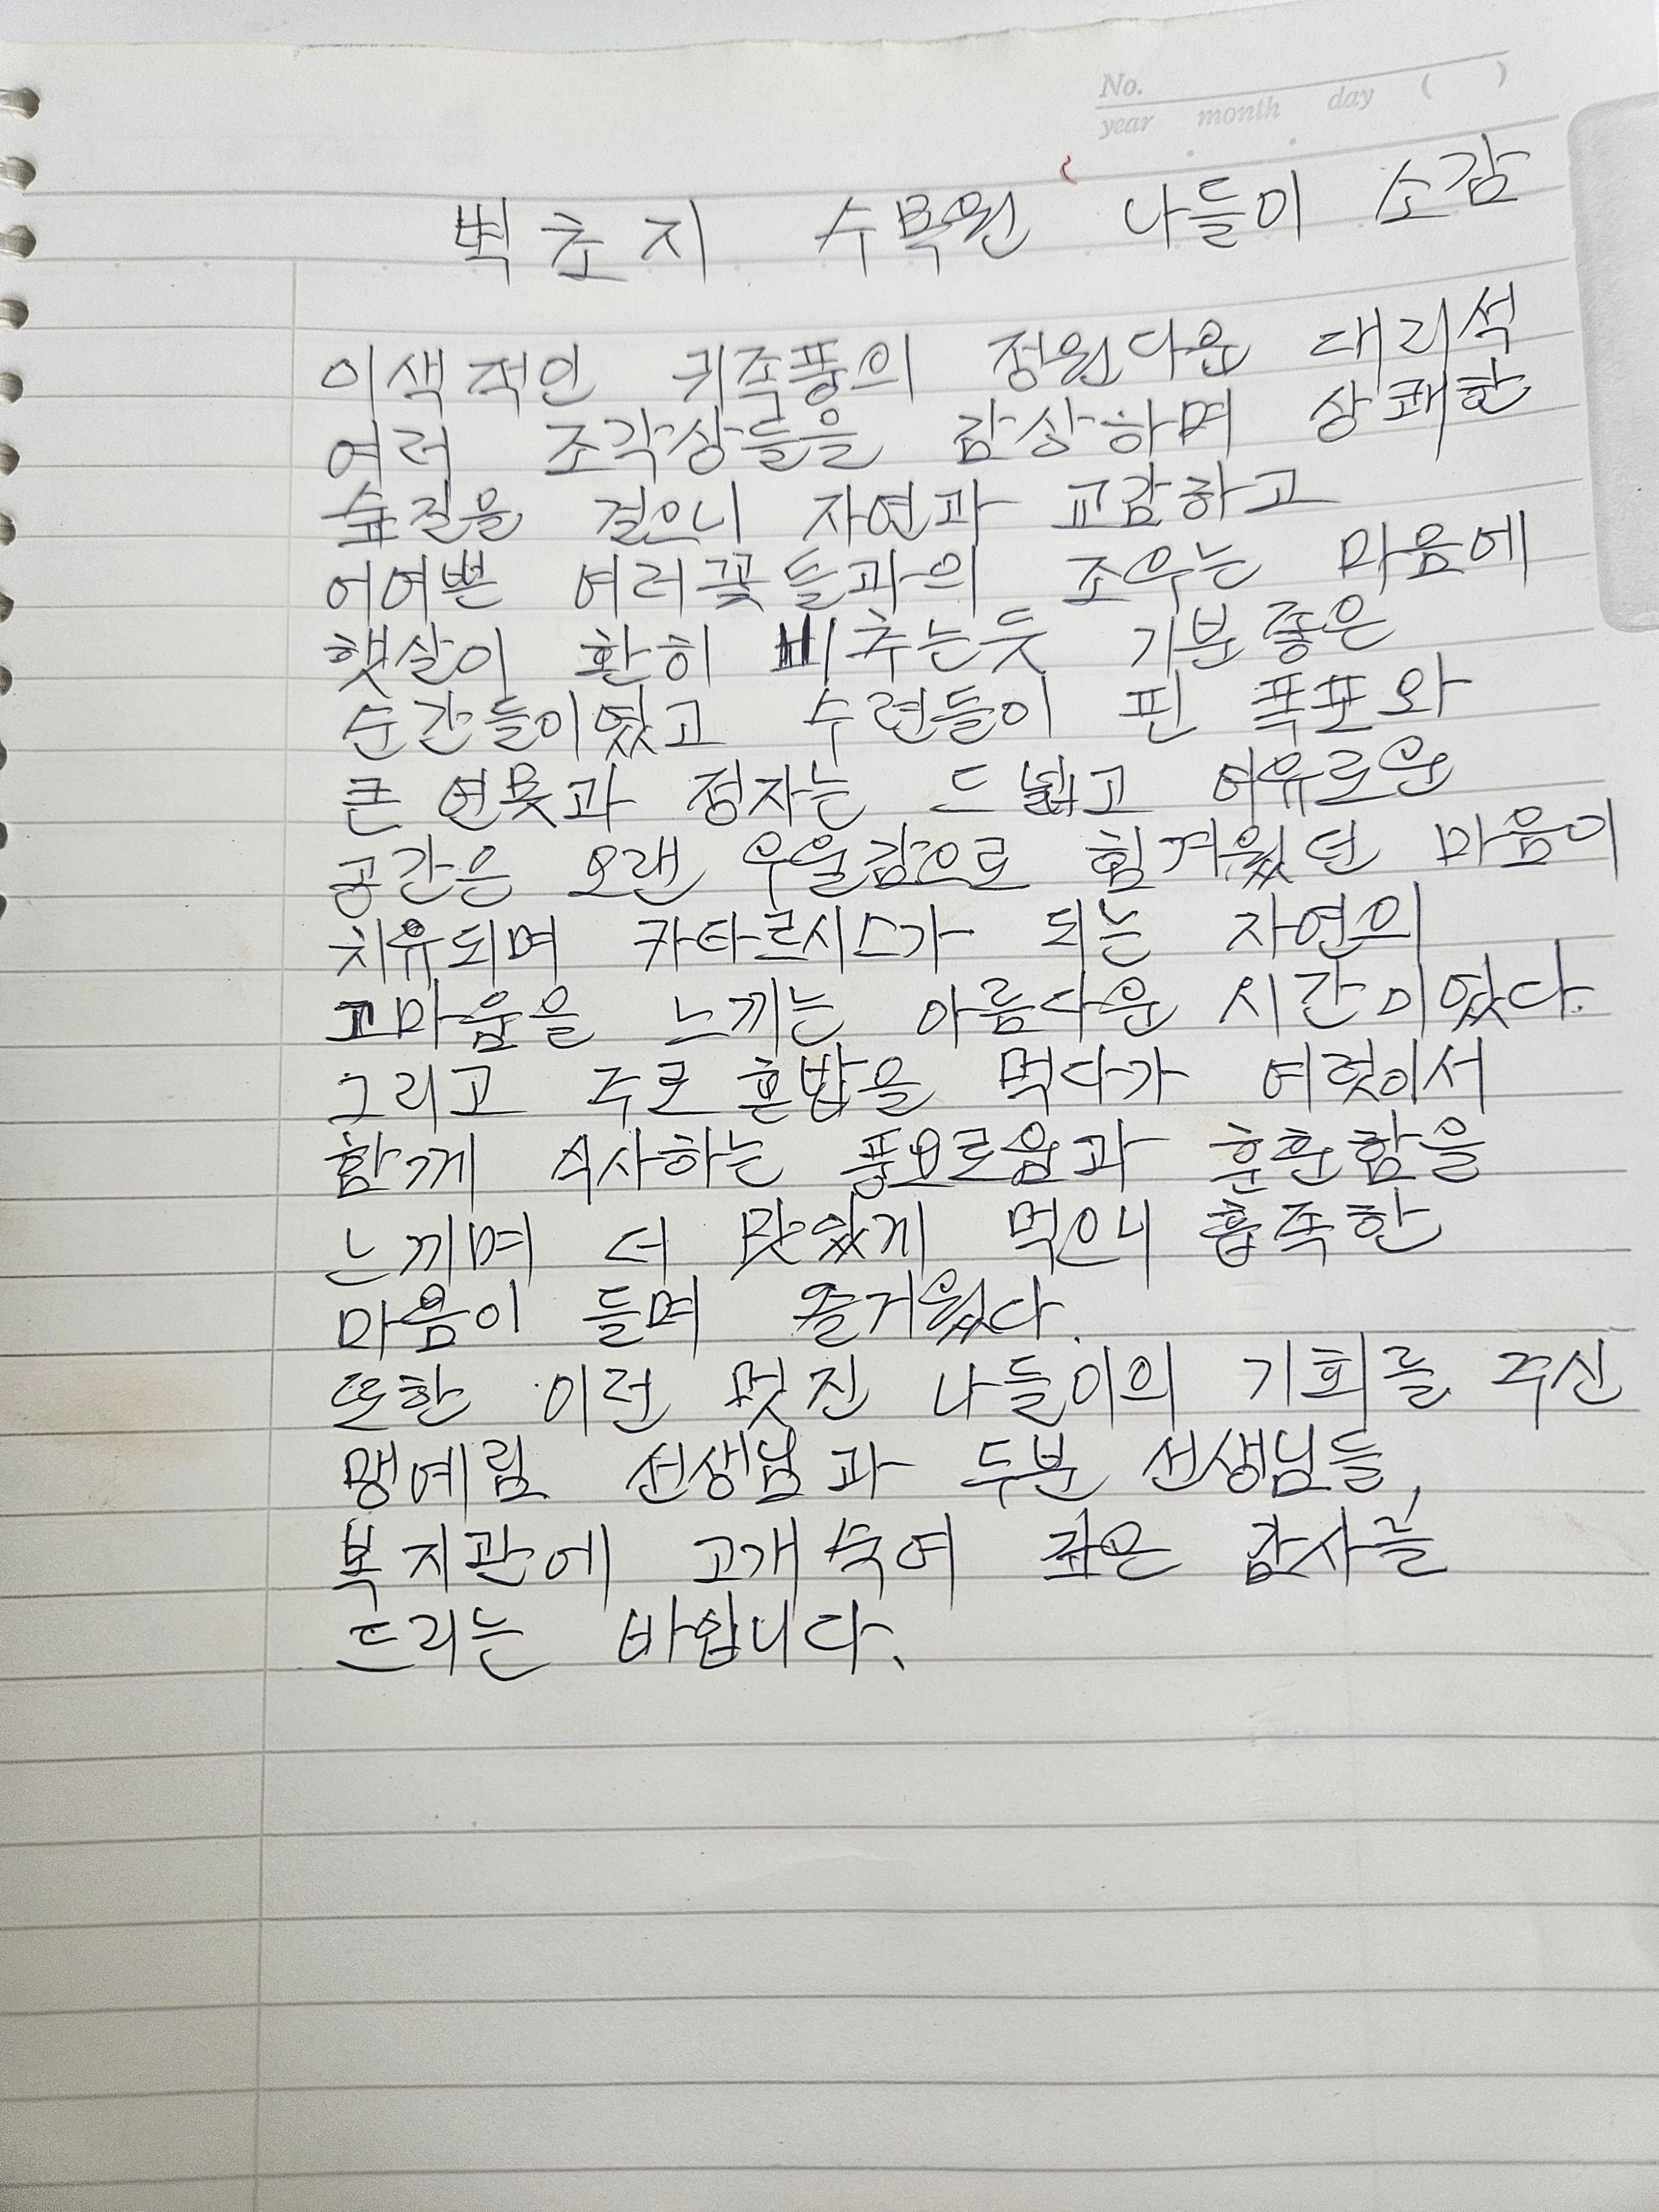 No.
year month day ( )
벽초지 수목원 나들이 소감
이색적인 귀족풍의 정원다운 대리석
여러 조각상들을 감상하며 상쾌한
숲길을 걸으니 자연과 교감하고
어여쁜 여러꽃들과의 조우는 마음에
햇살이 환히 비추는듯 기분좋은
순간들이였고 수련들이 핀 폭포와
큰 연못과 정자는 드넓고 여유로운
공간은 오랜 우울감으로 힘겨웠던 마음이
치유되며 카타르시스가 되는 자연의
고마움을 느끼는 아름다운 시간이었다.
그리고 주로 혼밥을 먹다가 여럿이서
함께 식사하는 풍요로움과 훈훈함을
느끼며 더 맛있게 먹으니 흡족한
마음이 들며 즐거웠다.
또한 이런 멋진 나들이의 기회를 주신
맹예림 선생님과 두분 선생님들,
복지관에 고개숙여 깊은 감사를
드리는 바입니다.